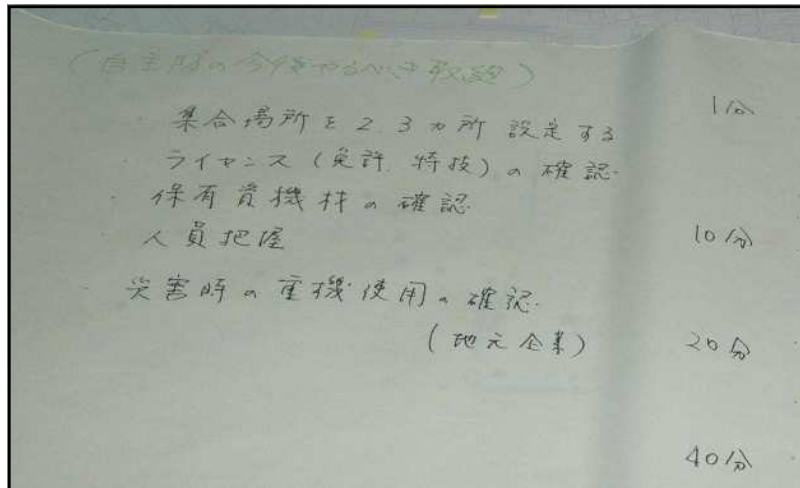 (自主防の今後やるべき取組)
・集合場所を2.3カ所設定する
・ライセンス(免許.特技)の確認.
・保有資機材の確認
・人員把握
・災害時の重機使用の確認.
(地元企業)
1分
10分
20分
40分